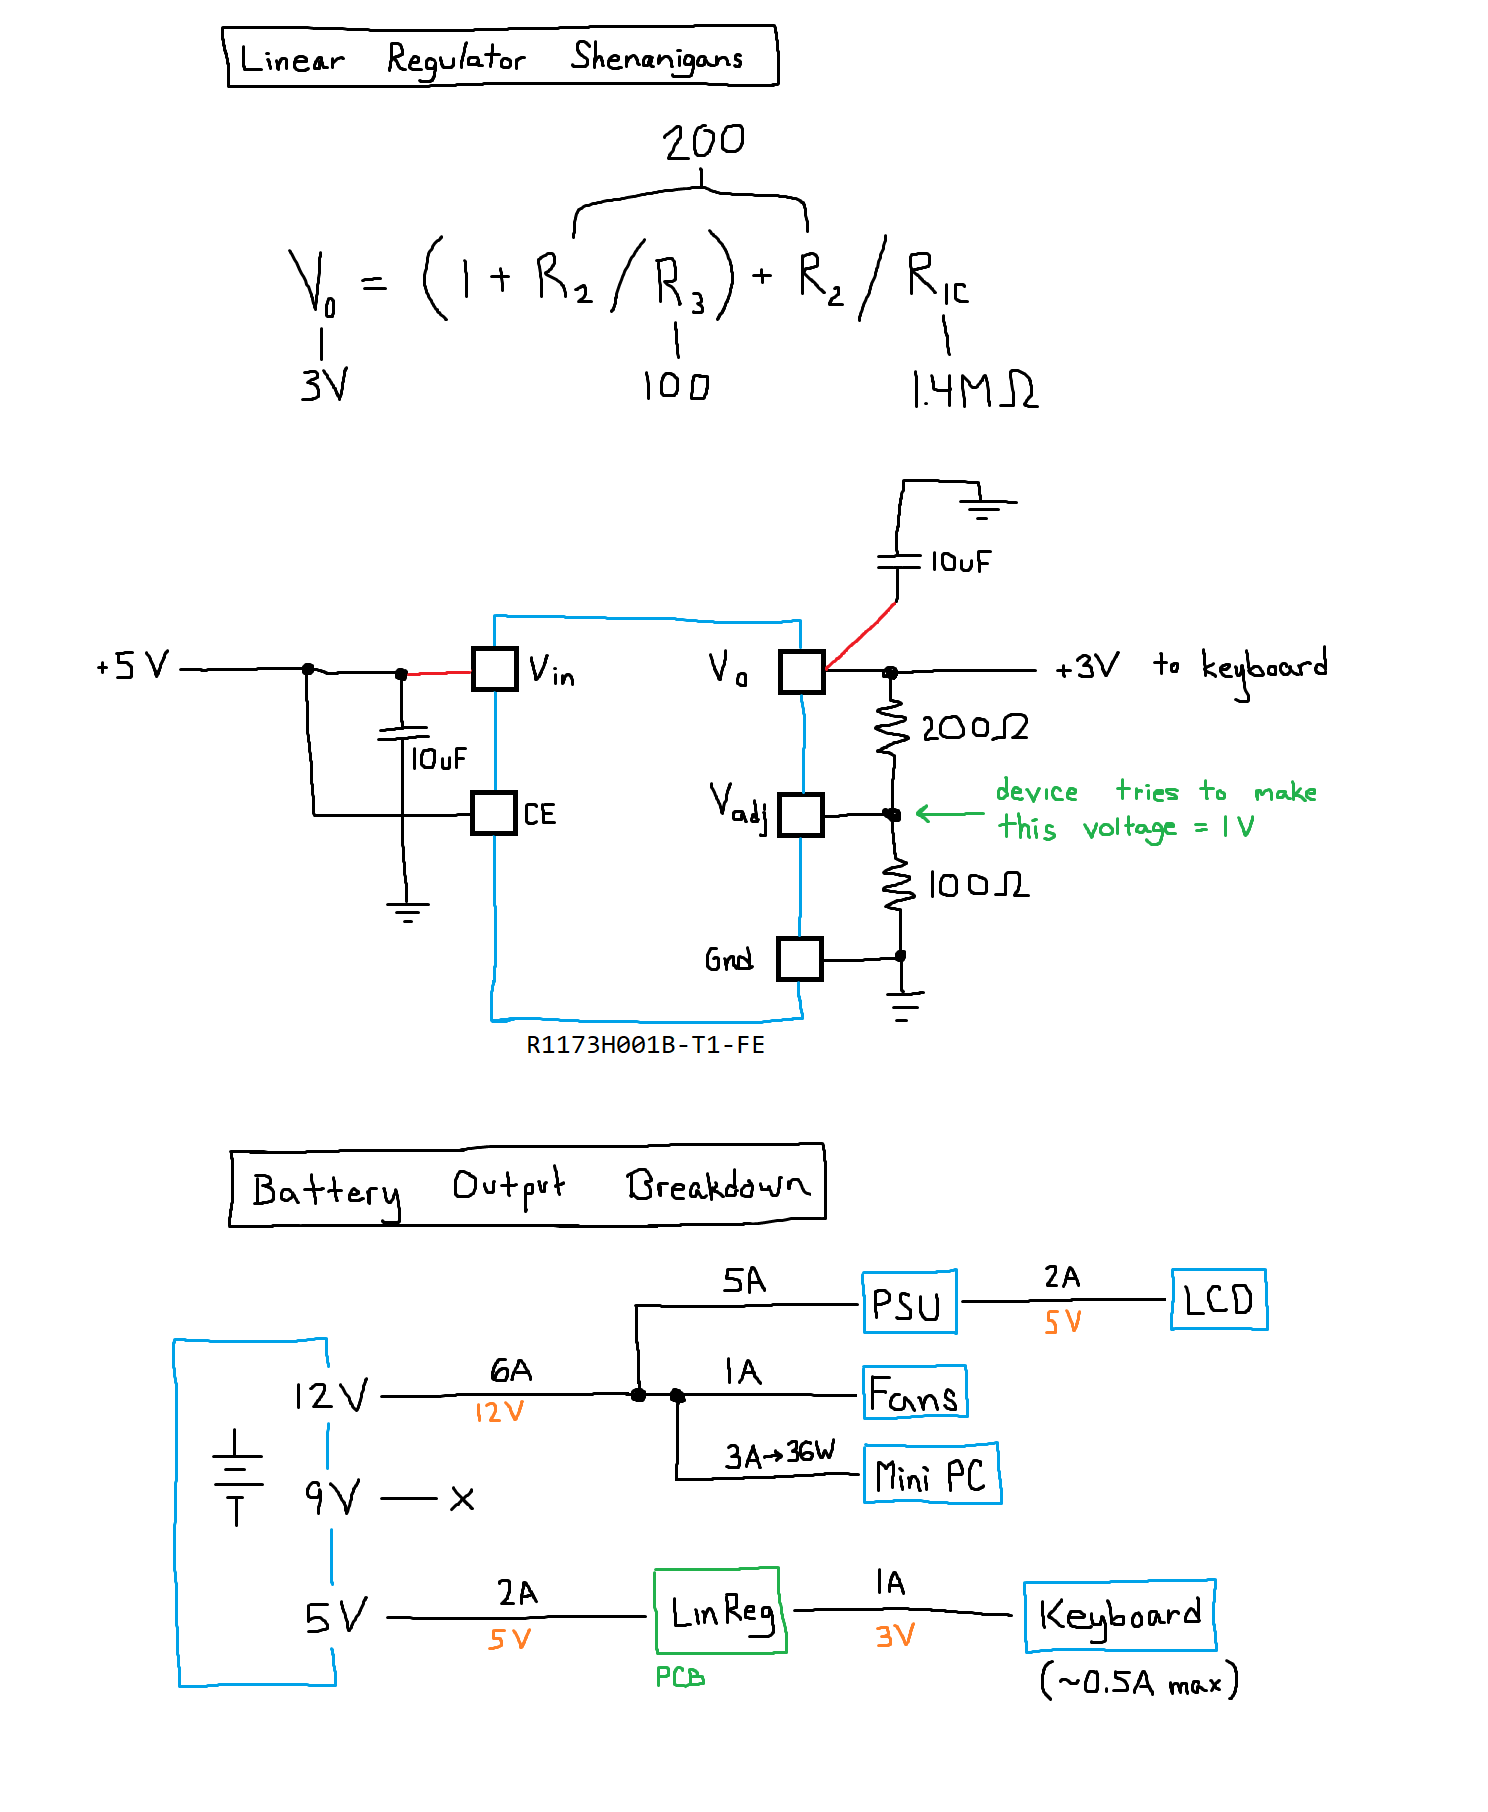 Linear Regulator Shenanigans
200
V₀ = (1 + R₂/R₃) + R₂/R₁C
3V 100 1.4MΩ
10uF
+5V Vin V₀ +3V to keyboard
200Ω
10uF
CE Vadj device tries to make
this voltage = 1V
100Ω
Gnd
R1173H001B-T1-FE
Battery Output Breakdown
5A PSU 2A LCD
5V
12V 6A 1A Fans
12V
3A→36W Mini PC
9V x
5V 2A LinReg 1A Keyboard
5V 3V
PCB (~0.5A max)